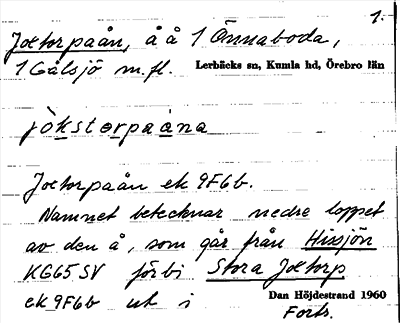 1.
Joxtorpaån, å å 1 Önnaboda,
1 Gålsjö m.fl. Lerbäcks sn, Kumla hd, Örebro län
jòkstorpaåna
Joxtorpaån ek 9F6b.
Namnet betecknar nedre loppet
av den å, som går från Hissjön
KG65 SV förbi Stora Joxtorp
ek 9F6b ut i Dan Höjdestrand 1960
Forts.